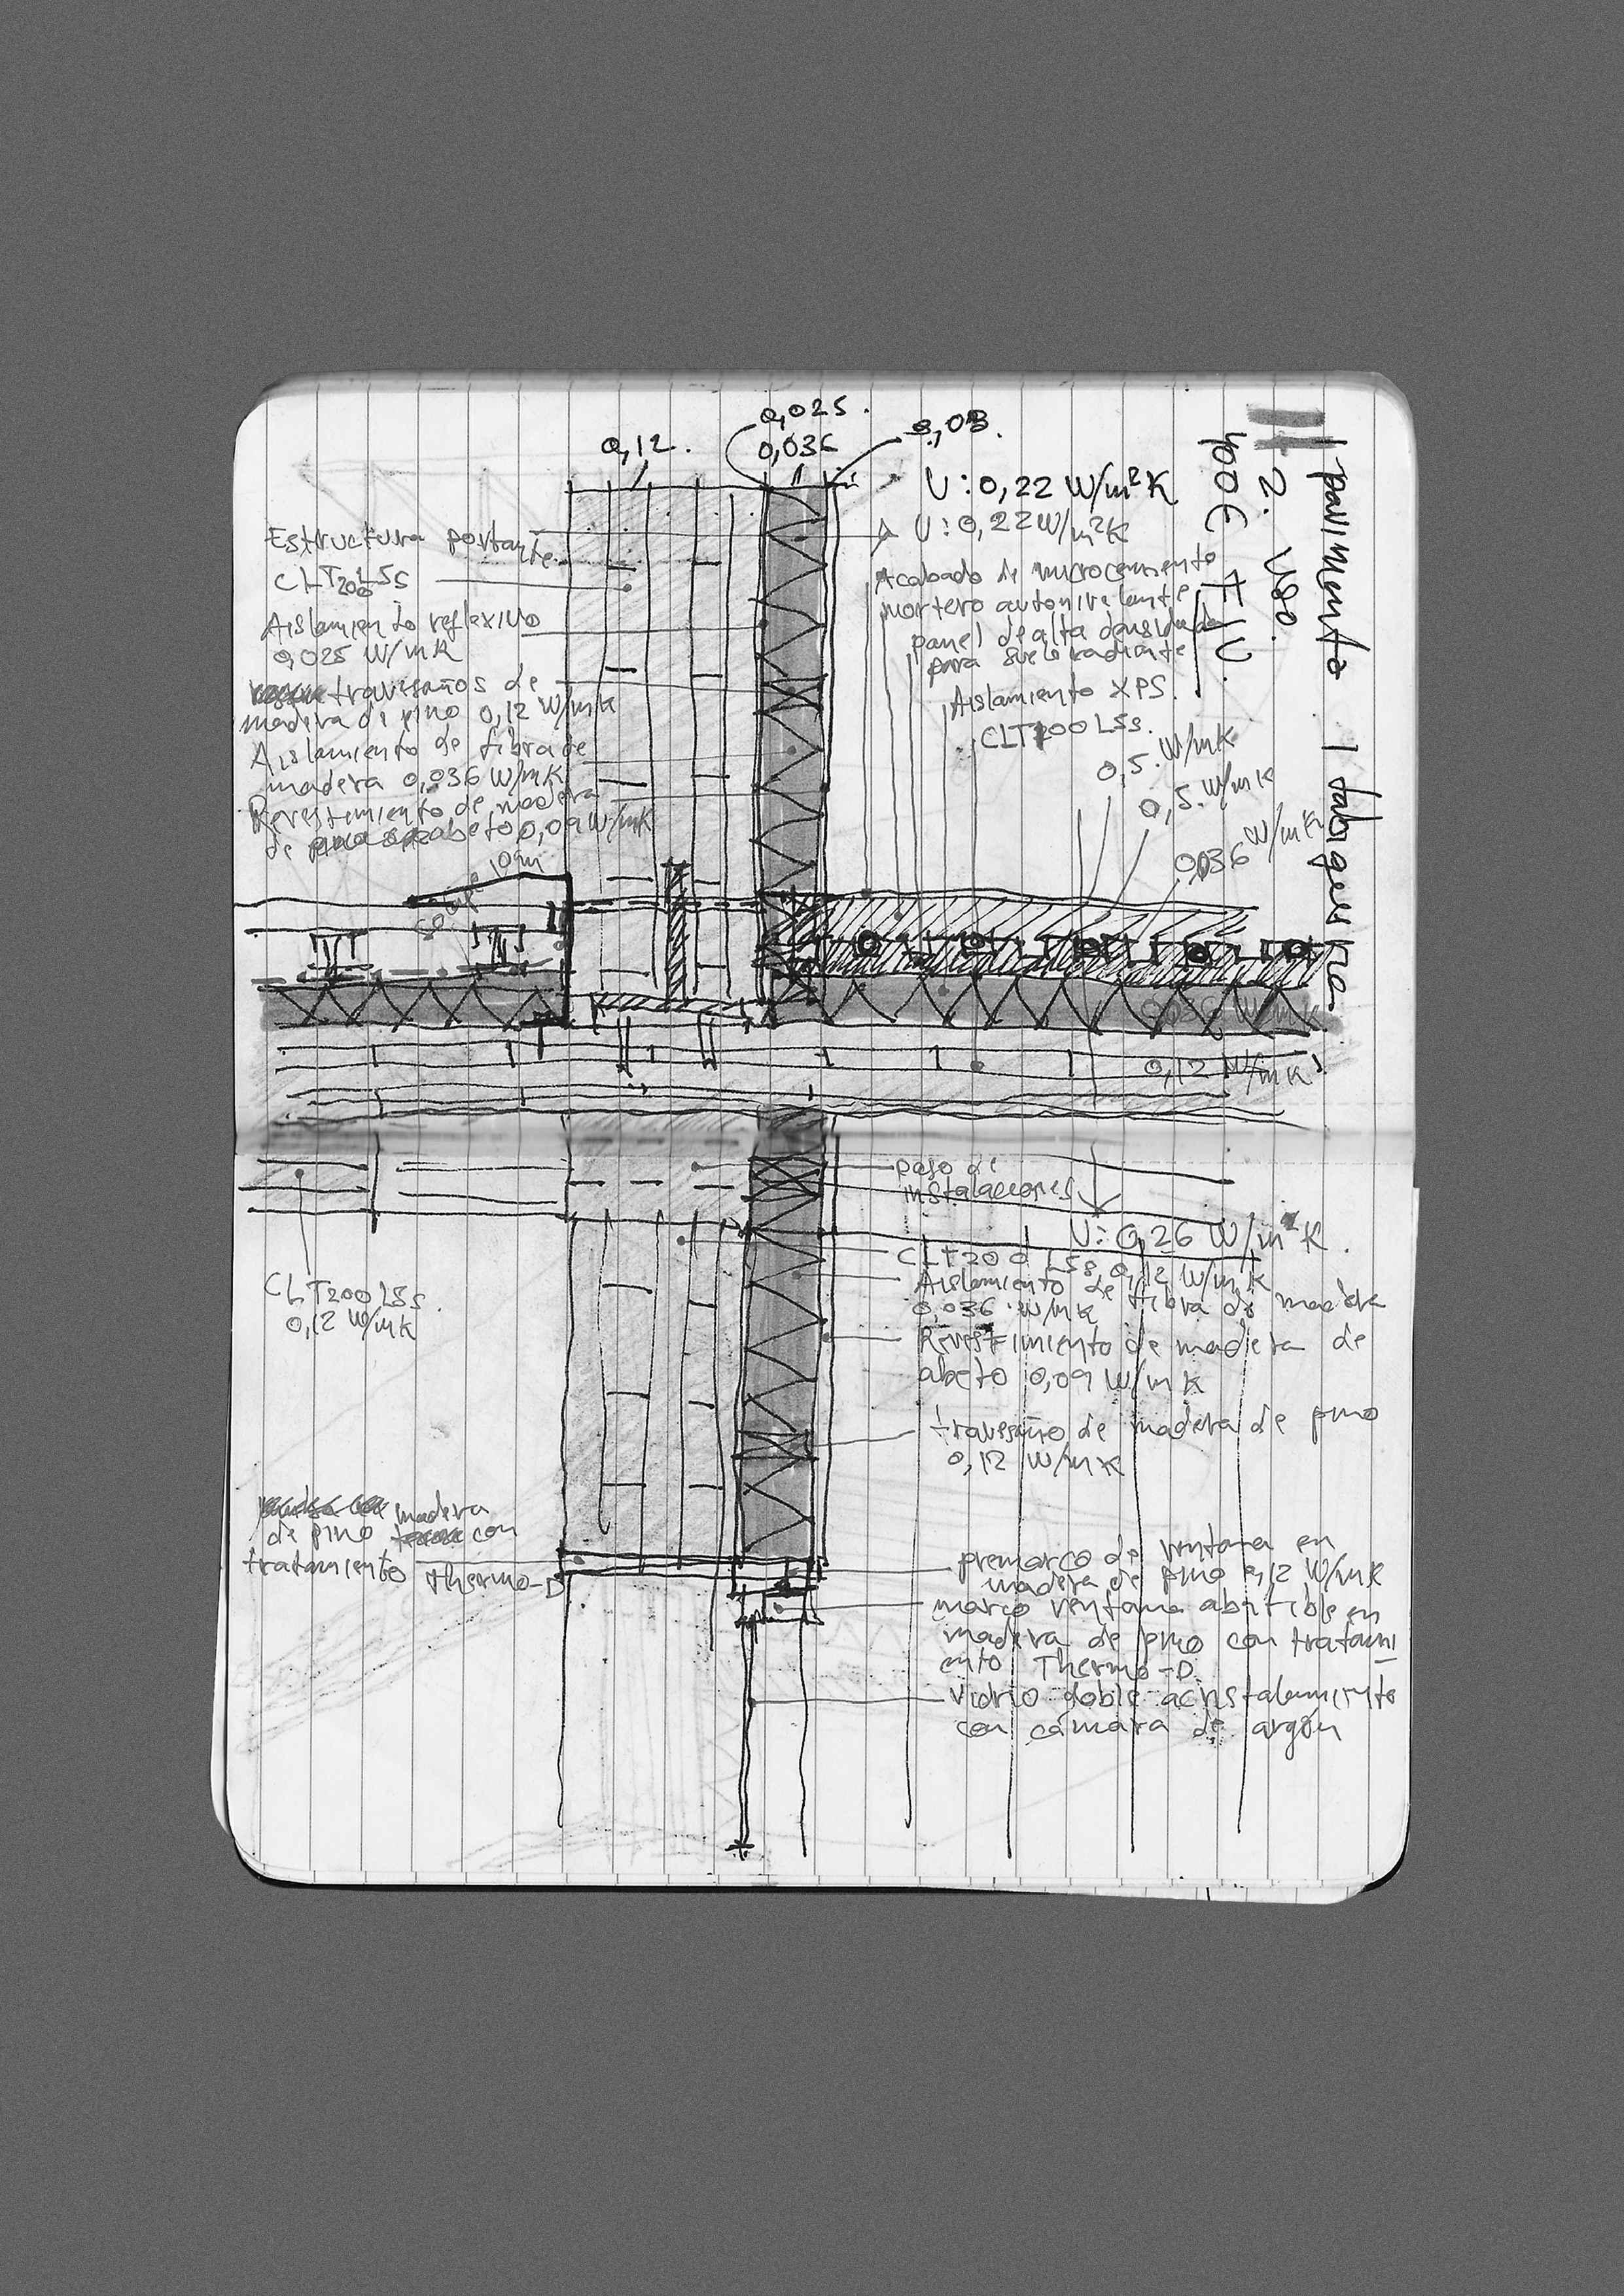 0,12.
0,025.
0,036
U:0,22 W/m²K
U:0,22W/m²K
Estructura portante
CLT200 L5s
Aislamiento reflexivo
0,025 W/mK
travesaños de
madera de pino 0,12 W/mK
Aislamiento de fibra de
madera 0,036 W/mK
Revestimiento de madera
de abeto 0,09 W/mK
Acabado de microcemento
mortero autonivelante
panel de alta densidad
para suelo radiante
Aislamiento XPS.
CLT200 L5s.
0,5. W/mK
0,5. W/mK
0,036 W/mK
0,036 W/mK
0,12 W/mK
1 pavimento 1 tabiquería
2. uso.
400€
paso de
instalaciones
U:0,26 W/m²K.
CLT200 L5s 0,12 W/mK
Aislamiento de fibra de madera
0,036 W/mK
Revestimiento de madera de
abeto 0,09 W/mK
travesaño de madera de pino
0,12 W/mK
CLT200 L5s.
0,12 W/mK
madera
de pino con
tratamiento Thermo-D
premarco de ventana en
madera de pino 0,12 W/mK
marco ventana abatible en
madera de pino con tratami
ento Thermo-D
vidrio doble acristalamiento
con cámara de argón